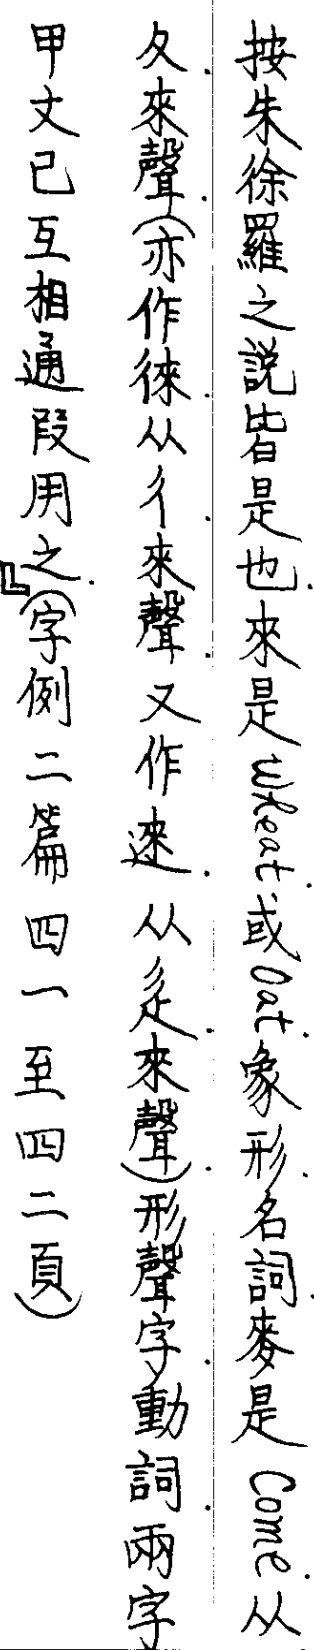 按朱徐羅之說皆是也.來是Wheat.或Oat.象形.名詞.麥是Come.从
夊.來聲.(亦作徠.从彳.來聲.又作逨.从辵.來聲).形聲字.動詞.兩字
甲文已互相通叚用之.」(字例二篇四一至四二頁)